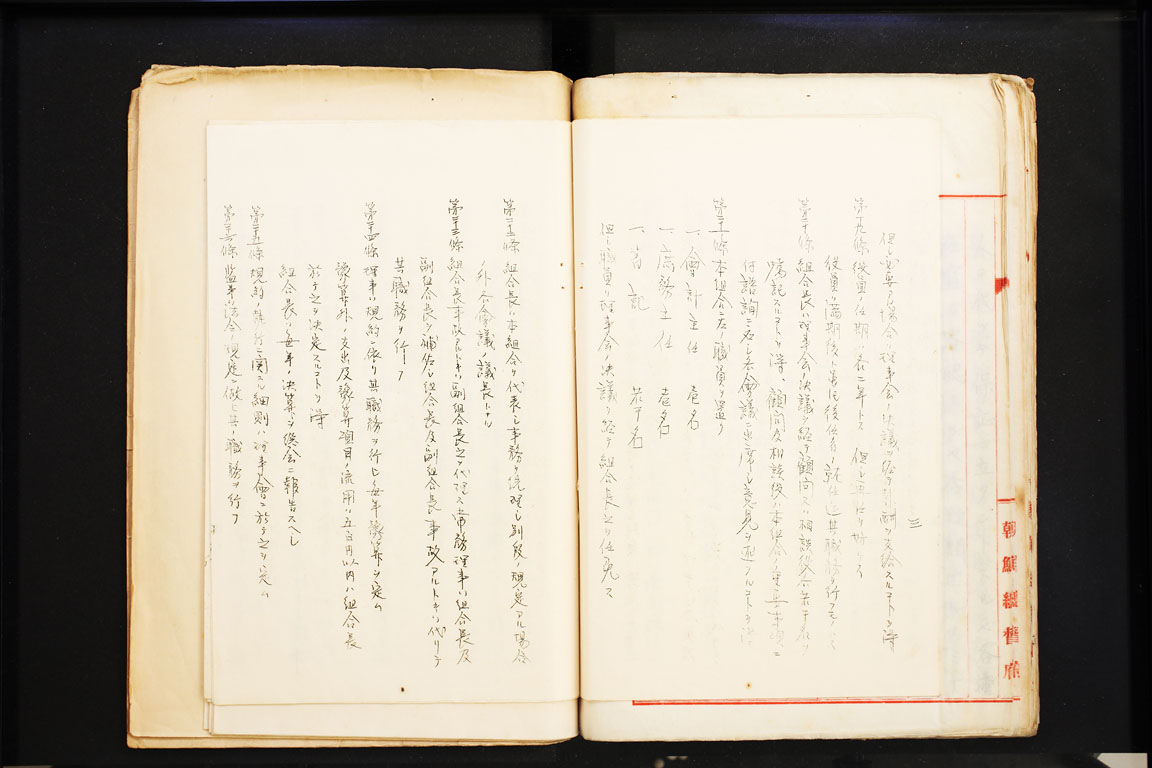 三
但シ必要アル場合ハ理事会ノ決議ヲ経テ報酬ヲ支給スルコトヲ得
第十九條 役員ノ任期ハ各二年トス 但シ再任ヲ妨ケス
役員ハ満期後ト雖モ後任者ノ就任迄其職務ヲ行フモノトス
第二十條 組合長ハ理事会ノ決議ヲ経テ顧問又ハ相談役各若干名ヲ
嘱託スルコトヲ得、顧問及相談役ハ本組合ノ重要事項ニ
付諮詢ニ応シ各會議ニ出席シ意見ヲ述フルコトヲ得
第二十一條 本組合ニ左ノ職員ヲ置ク
一、會計主任 壱名
一、庶務主任 壱名
一、書記 若干名
但シ職員ハ理事会ノ決議ヲ経テ組合長之ヲ任免ス
第二十二條 組合長ハ本組合ヲ代表シ事務ヲ統理シ別段ノ規定アル場合
ノ外各会議ノ議長トナル
第二十三條 組合長事故アルトキハ副組合長之ヲ代理ス 常務理事ハ組合長及
副組合長ヲ補佐シ組合長及副組合長事故アルトキハ代リテ
其職務ヲ行フ
第二十四條 理事ハ規約ニ依リ其職務ヲ行ヒ毎年豫算ヲ定ム
豫算外ノ支出及豫算項目ノ流用ハ五百円以内ハ組合長
於テ之ヲ決定スルコトヲ得
組合長ハ毎年ノ決算ヲ総会ニ報告スヘシ
第二十五條 規約ノ施行ニ関スル細則ハ理事會ニ於テ之ヲ定ム
第二十六條 監事ハ法令ノ規定ニ倣ヒ其ノ職務ヲ行フ
朝鮮總督府